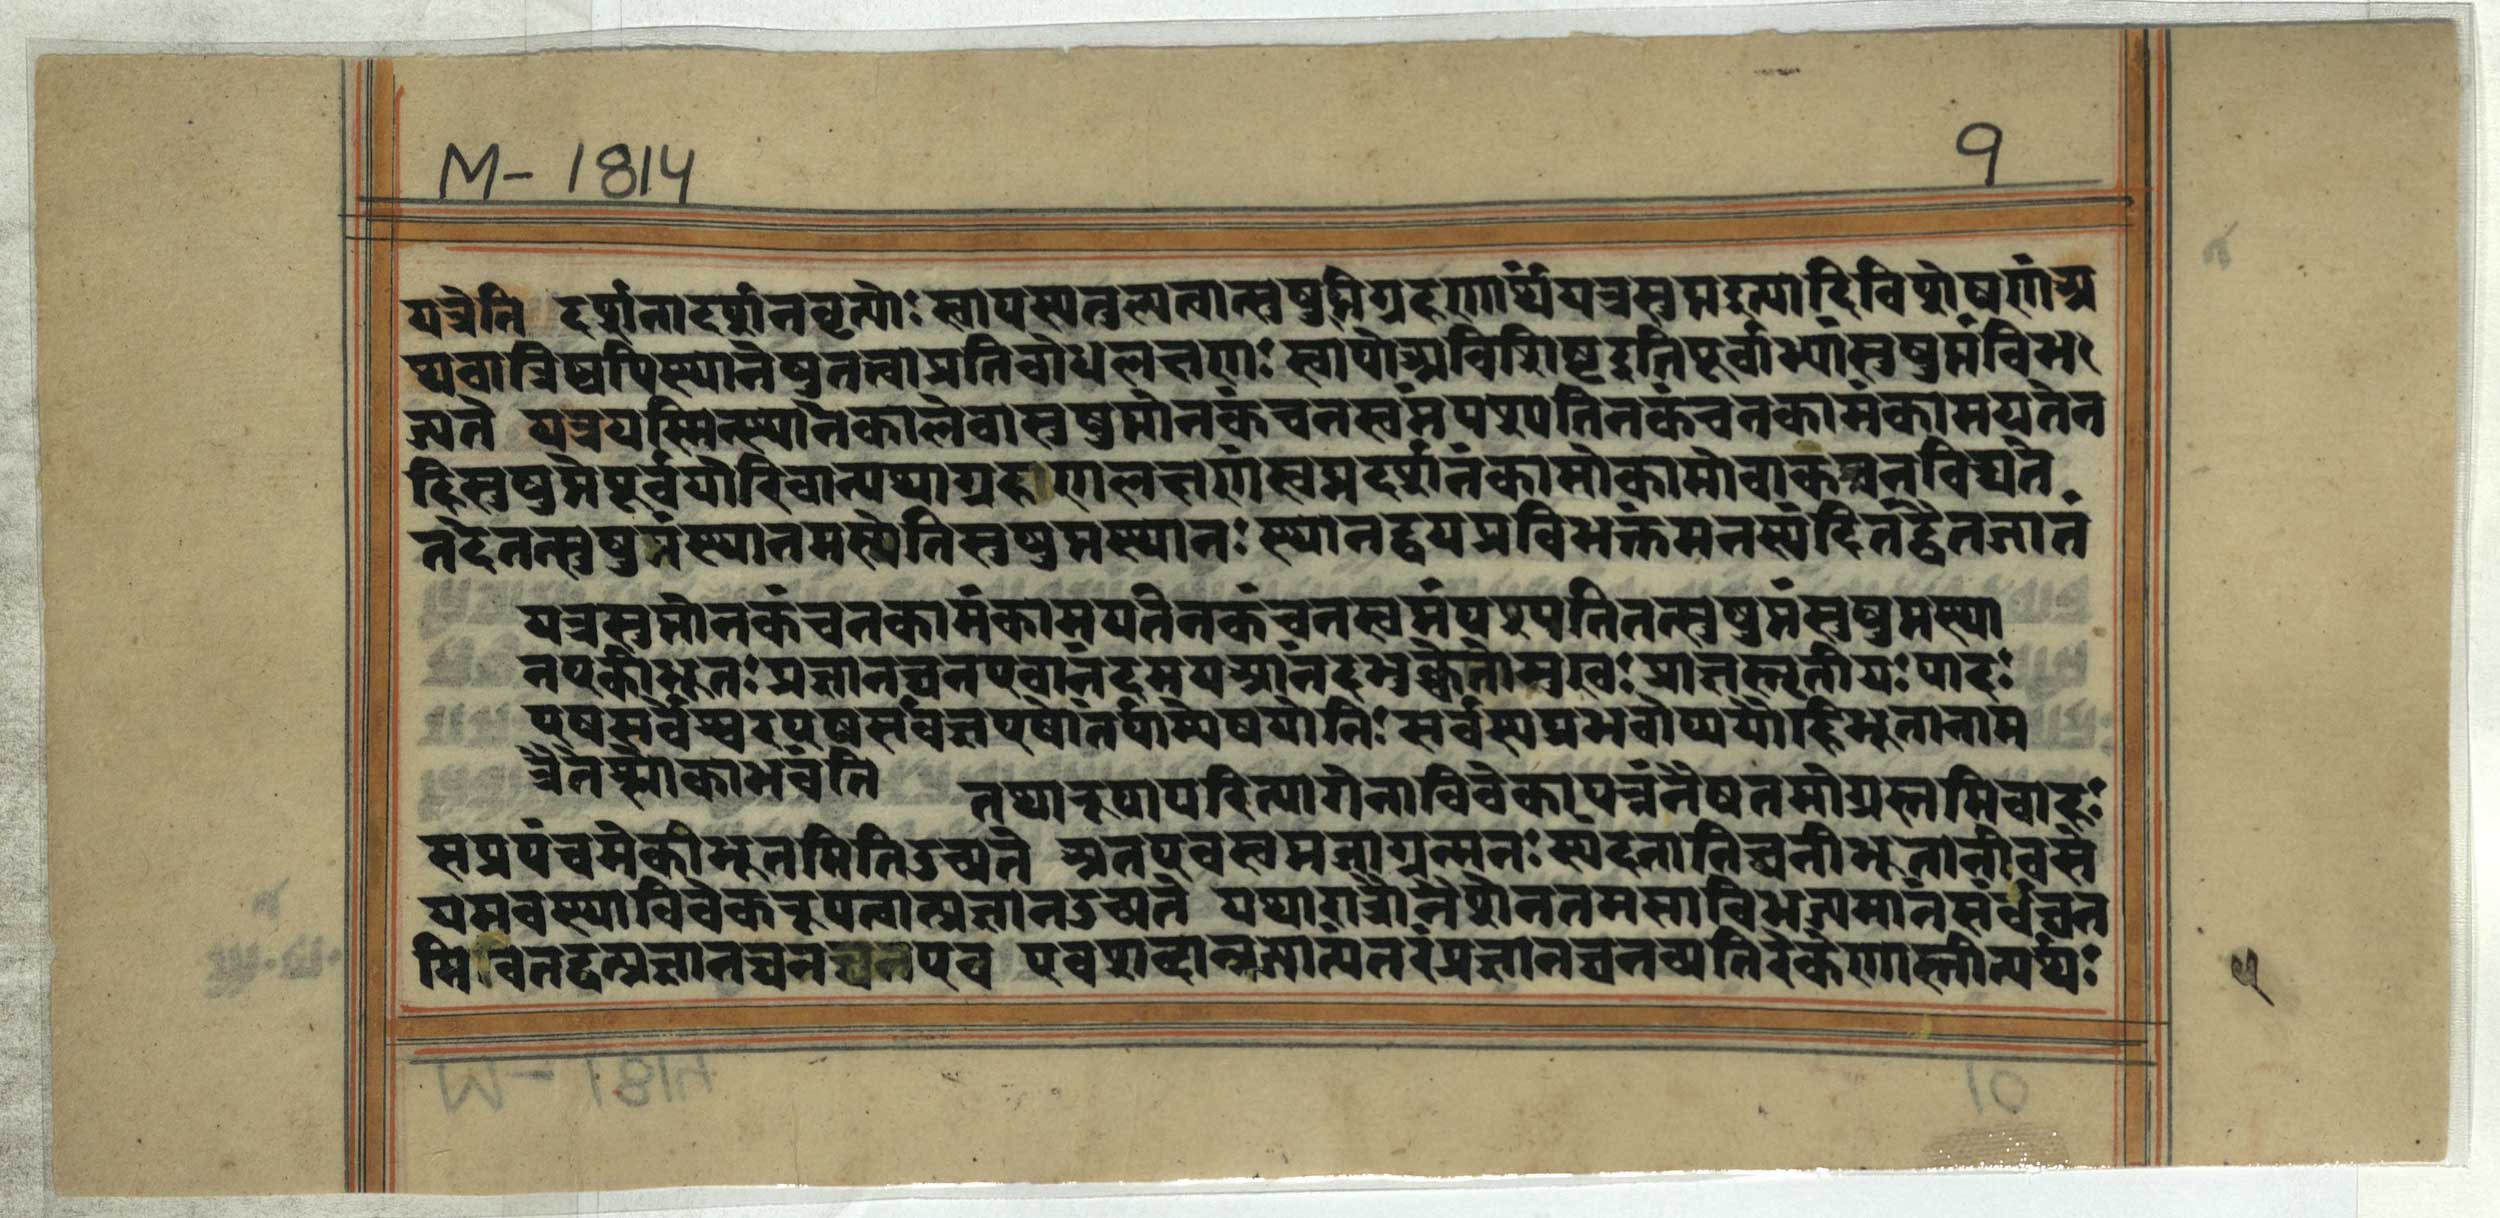 M-1814
9
यत्रेति दर्शनादर्शनवृत्योः स्वापस्यतुल्यत्वात्सुषुप्तिग्रहणार्थंयत्रसुप्तइत्यादिविशेषणंअ
थवात्रिष्वपिस्थानेषुतत्वाप्रतिबोधलक्षणः स्वापोअविशिष्टइतिपूर्वाभ्यांसुषुप्तंविभ
ज्यते यत्रयस्मिन्स्थानेकालेवासुषुप्तोनकंचनस्वप्नंपश्यतिनकंचनकामंकामयतेन
हिसुषुप्तेपूर्वयोरिवान्यथाग्रहणलक्षणंस्वप्नदर्शनंकामोकामोवाकश्चनविद्यते
तदेतत्सुषुप्तंस्थानमस्येतिसुषुप्तस्थानः स्थानद्वयप्रविभक्तंमनस्पंदितंद्वैतजातं
यत्रसुप्तोनकंचनकामंकामयतेनकंचनस्वप्नंपश्यतितत्सुषुप्तंसुषुप्तस्था
नएकीभूतः प्रज्ञानघनएवानंदमयआनंदभुक्चेतोमुखः प्राज्ञस्तृतीयः पादः
एषसर्वेश्वरएषसर्वज्ञएषोंतर्याम्येषयोनिः सर्वस्यप्रभवोप्ययौहिभूतानाम
त्रैतेश्लोकाभवंति
तथारूपापरित्यागेनाविवेकापन्नंनैषतमोग्रस्तमिवाहः
सप्रपंचमेकीभूतमितिउच्यते अतएवस्वप्नजाग्रन्मनः स्पंदनातिघनीभूतानीवसे
यमवस्थाविवेकरूपत्वात्प्रज्ञानउच्यते यथारात्रौनैशेनतमसाविभज्यमानंसर्वंघन
मिवतद्वत्प्रज्ञानघन एव एवशब्दान्नजात्यंतरंप्रज्ञानघनव्यतिरेकेणास्तीत्यर्थः
५